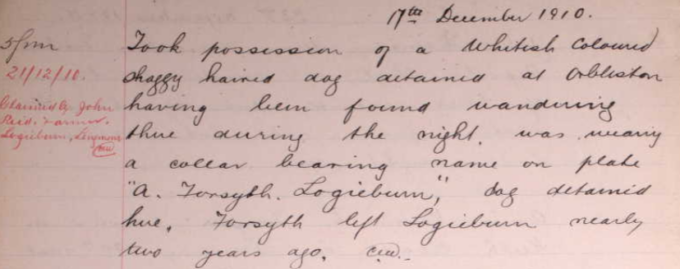 17th December 1910.
5/pm
21/12/10.
Claimed by John
Reid. Farmer.
Logieburn,
Took possession of a Whitish Coloured
shaggy haired dog detained at Orbliston
having been found wandering
there during the night, was wearing
a collar bearing name on plate
"A. Forsyth. Logieburn", dog detained
here. Forsyth left Logieburn nearly
two years ago.